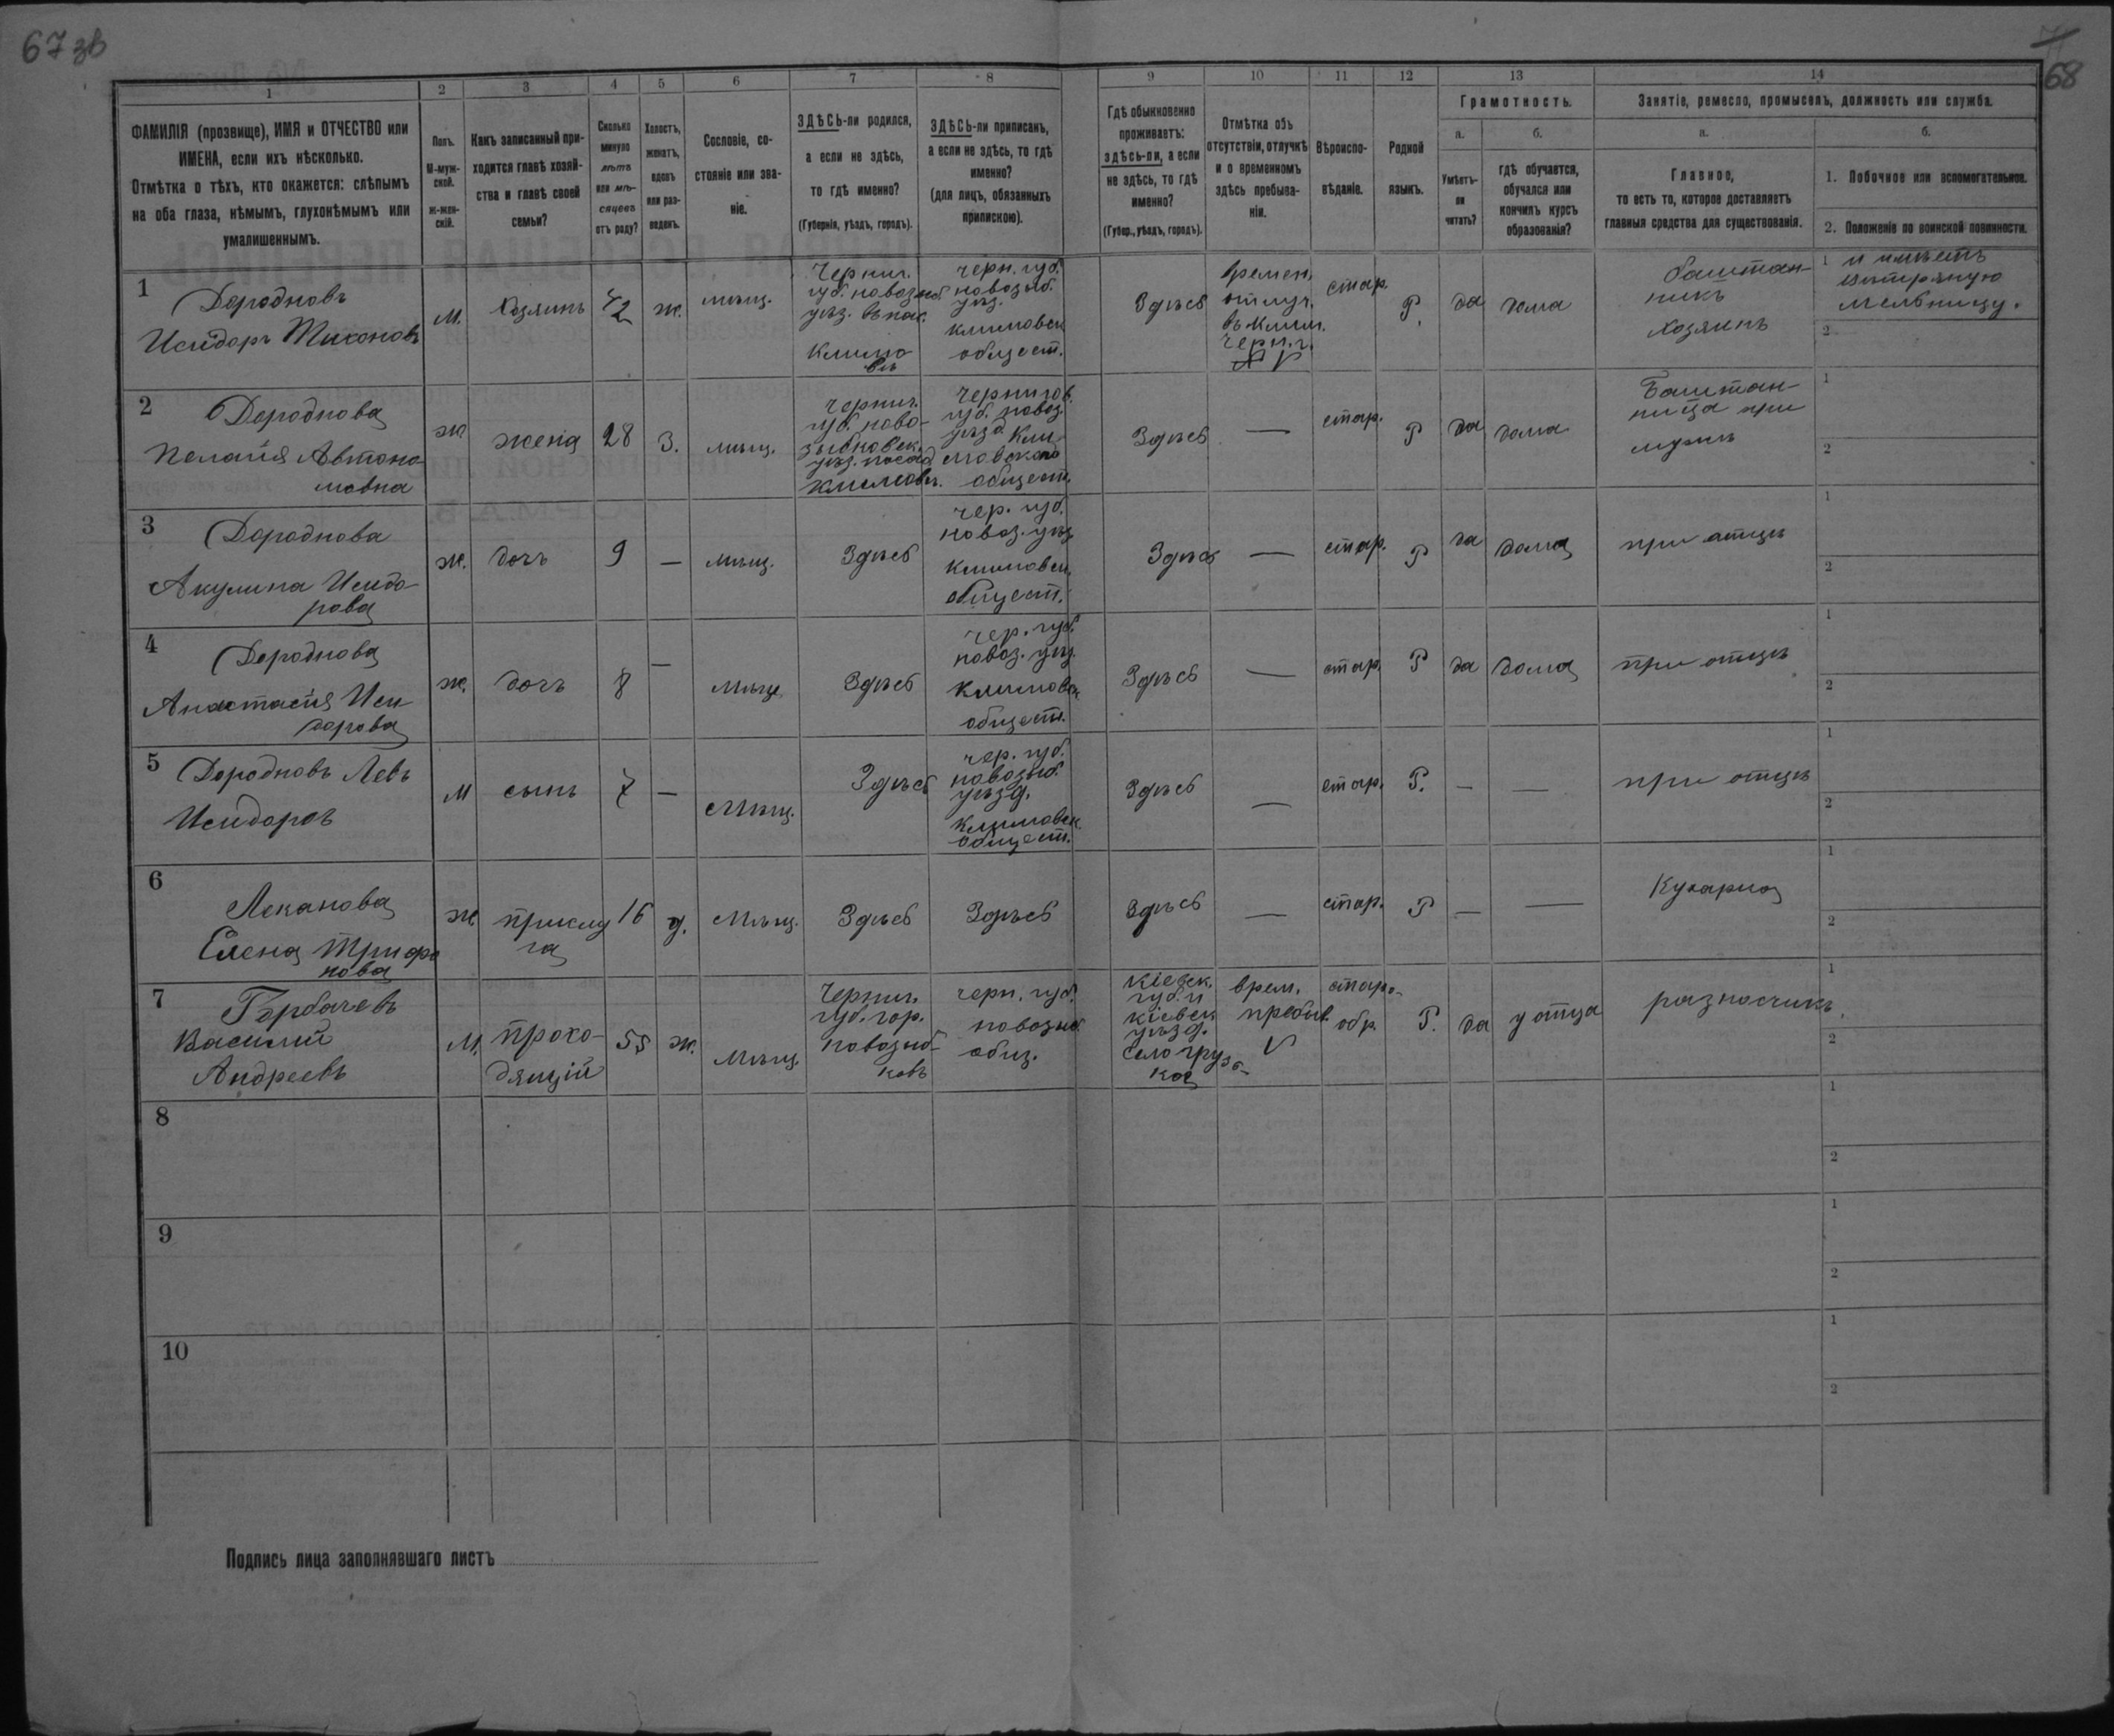 67 зв
68
1 2 3 4 5 6 7 8 9 10 11 12 13 14
ФАМИЛІЯ (прозвище), ИМЯ и ОТЧЕСТВО или
ИМЕНА, если ихъ нѣсколько.
Отмѣтка о тѣхъ, кто окажется: слѣпымъ
на оба глаза, нѣмымъ, глухонѣмымъ или
умалишеннымъ.
Полъ.
М-муж-
ской.
ж-жен-
скій.
Какъ записанный при-
ходится главѣ хозяй-
ства и главѣ своей
семьи?
Сколько
минуло
лѣтъ
или мѣ-
сяцевъ
отъ роду?
Холостъ,
женатъ,
вдовъ
или раз-
веденъ.
Сословіе, со-
стояніе или зва-
ніе.
ЗДѢСЬ-ли родился,
а если не здѣсь,
то гдѣ именно?
(Губернія, уѣздъ, городъ).
ЗДѢСЬ-ли приписанъ,
а если не здѣсь, то гдѣ
именно?
(для лицъ, обязанныхъ
припискою).
Гдѣ обыкновенно
проживаетъ:
здѣсь-ли, а если
не здѣсь, то гдѣ
именно?
(Губер., уѣздъ, городъ).
Отмѣтка объ
отсутствіи, отлучкѣ
и о временномъ
здѣсь пребыва-
ніи.
Вѣроиспо-
вѣданіе.
Родной
языкъ.
Грамотность.
а.
б.
Умѣетъ-
ли
читать?
гдѣ обучается,
обучался или
кончилъ курсъ
образованія?
Занятіе, ремесло, промыселъ, должность или служба.
а.
б.
Главное,
то есть то, которое доставляетъ
главныя средства для существованія.
1. Побочное или вспомогательное.
2. Положеніе по воинской повинности.
1
Дороdновъ
Исидоръ Тихоновъ
М.
Хозяинъ
42
ж.
мѣщ.
Черниг.
губ. новозыб.
уѣз. въ пос.
Климо
вѣ
черн. губ.
новозыб.
уѣз.
климовск
общест.
Здѣсь
времен.
отлуч.
въ Клим.
черн. г.
стар.
Р.
да
дома
баштан-
никъ
хозяинъ
1 и имѣетъ
вѣтряную
мельницу.
2
2
Дороднова
Пелагія Автоно
мовна
ж
жена
28
З.
мѣщ.
черниг.
губ. ново-
зыбковск.
уѣз. посад
Климовъ.
Черниговъ.
губ. новоз.
уѣзд Кли
мовского
общест.
Здѣсь
—
стар.
Р
да
дома
Баштан-
ница при
мужѣ
1
2
3
Дороднова
Акулина Исидо-
рова
ж.
дочь
9
—
мѣщ.
Здѣсь
чер. губ.
новоз. уѣз
климовск.
общест.
Здѣсь
—
стар.
Р
да
дома
при отцѣ
1
2
4
Дороднова
Анастасія Иси
дорова
ж.
дочь
8
—
мѣщ
Здѣсь
чер. губ.
новоз. уѣз.
Климовск
общест.
Здѣсь
—
стар.
Р
да
дома
при отцѣ
1
2
5
Дородновъ Левъ
Исидоровъ
М
сынъ
7
—
Мѣщ.
Здѣсь
чер. губ.
новозыб.
уѣзд.
Климовск.
общест.
Здѣсь
—
стар.
Р.
—
—
при отцѣ
1
2
6
Леканова
Елена Трифо
нова
ж
прислу
га
16
д.
Мѣщ.
Здѣсь
Здѣсь
Здѣсь
—
стар.
Р
—
—
Кухарка
1
2
7
Горбачевъ
Василій
Андреевъ
М.
прохо-
дящій
55
ж.
Мѣщ.
Черниг.
губ. гор.
новозыб-
ковъ
черн. губ.
новозыб
общ.
Кіевск.
губ. и
кіевск
уѣзд.
село грузс-
кое
врем.
пребыв.
старо-
обр.
Р.
да
у отца
разносчикъ.
1
2
8
1
2
9
1
2
10
1
2
Подпись лица заполнявшаго листъ